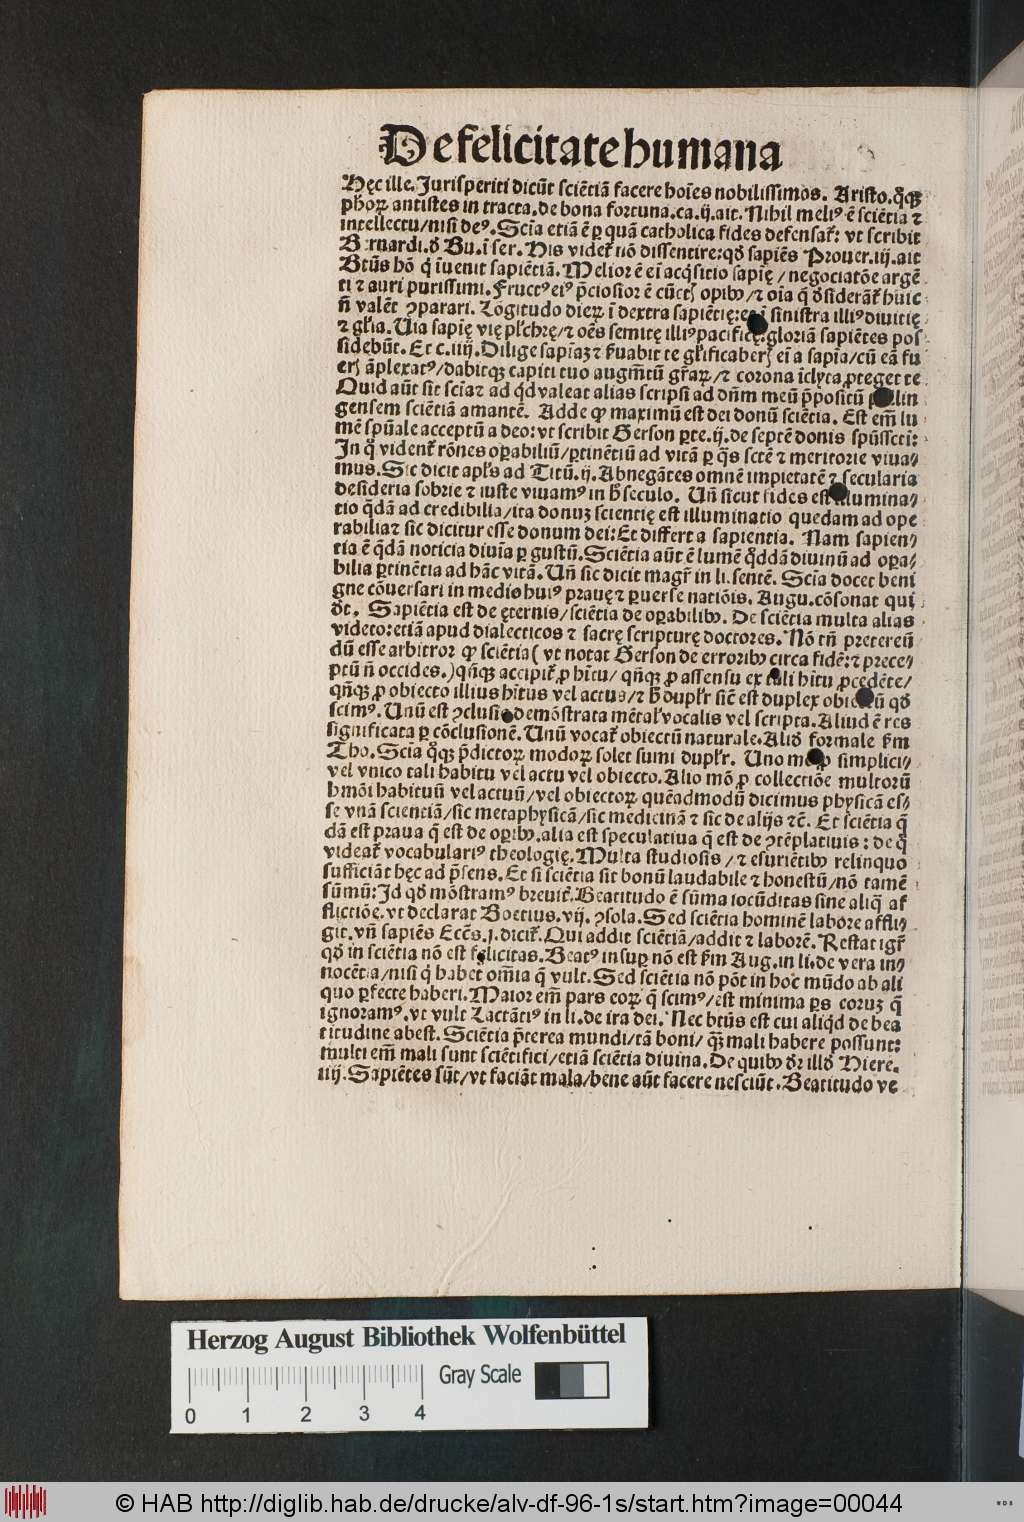 De felicitate humana
Hęc ille. Jurisperiti dicūt sciētiā facere hoīes nobilissimos. Aristo. q̊qꝫ
ph̄oꝝ antistes in tracta. de bona fortuna. ca. ij. ait. Nihil meliꝰ ē sciētia ⁊
intellectu/nisi deꝰ. Scīa etiā ē ꝑ quā catholica fides defensat̄: vt scribit
Bernardi. ð Bu. ī ser. His videt̄ nō dissentire: qð sapiēs Prouer. iij. ait
Btūs hō q̄ īuenit sapiētiā. Melior ē eī acq̄sitio sapię/negociatōe argē
ti ⁊ auri purissimi. Fructꝰ eiꝰ p̄ciosior ē cūctꝭ opibꝰ/⁊ oīa q̄ ðsiderāt̄ huic
n̄ valēt ꝯparari. Lōgitudo dieꝝ ī dextra sapiētię: et ī sinistra illiꝰ diuitię
⁊ gl̄ia. Uia sapię vię pl̄chrę/⁊ oēs semitę illiꝰ pacificę: gloriā sapiētes pos
sidebūt. Et c. iiij. Dilige sapīaꝫ ⁊ p̄uabit te gl̄ificaberꝭ eī a sapīa/cū eā fu
erꝭ āplexatꝰ/dabitqꝫ capiti tuo augm̄tū gr̄aꝝ/⁊ corona īclyta ꝓteget te
Quid aūt sit scīa ⁊ ad qd valeat alias scripsi ad dn̄m meū p̄positū lin
gensem sciētiā amantē. Adde ꝙ maximū est dei donū sciētia. Est em̄ lu
mē spūale acceptū a deo: vt scribit Gerson ꝑte. ij. de septē donis spūssctī:
In q̄ vident̄ rōnes oꝑabiliū/ꝑtinētiū ad vitā ꝑ q̄s sctē ⁊ meritorie viua/
mus. Sic dicit apl̄s ad Titū. ij. Abnegātes omnē impietatē ⁊ secularia
desideria sobrie ⁊ iuste viuamꝰ in h̄ seculo. Un̄ sicut fides est illumina/
tio q̄dā ad credibilia/ita donuꝫ scientię est illuminatio quedam ad ope
rabilia ⁊ sic dicitur esse donum dei: Et differt a sapientia. Nam sapien/
tia ē q̄dā noticia diuīa ꝑ gustū. Sciētia aūt ē lumē q̊ddā diuinū ad oꝑa/
bilia ꝑtinētia ad hāc vitā. Un̄ sic dicit magr̄ in li. sentē. Scīa docet beni
gne cōuersari in medio huiꝰ prauę ⁊ ꝑuerse natiōis. Augu. cōsonat qui
ðt. Sapiētia est de ęternis/sciētia de oꝑabilibꝰ. De sciētia multa alias
video: etiā apud dialecticos ⁊ sacrę scripturę doctores. Nō tn̄ pretereū
dū esse arbitror ꝙ sciētia (vt notat Gerson de erroribꝰ circa fidē: ⁊ prece/
ptū n̄ occides.) qn̄qꝫ accipit̄ ꝓ hītu/qn̄qꝫ ꝓ assensu ex tali hītu ꝓcedēte/
qn̄qꝫ ꝓ obiecto illius hītus vel actus/⁊ h̄ dupl̄r sic̄ est duplex obiectū qð
scimꝰ. Unū est ꝯclusio demōstrata mētal̄ vocalis vel scripta. Aliud ē res
significata ꝑ cōclusionē. Unū vocat̄ obiectū naturale. Alið formale ẜm
Tho. Scīa q̊qꝫ p̄dictoꝝ modoꝝ solet sumi dupl̄r. Uno mō ꝓ simplici/
vel vnico tali habitu vel actu vel obiecto. Alio mō ꝓ collectiōe multorū
hmōi habituū vel actuū/vel obiectoꝝ quēadmodū dicimus physicā es/
se vnā scienciā/sic metaphysicā/sic medicinā ⁊ sic de alijs ⁊c̄. Et sciētia q̄
dā est praua q̄ est de oꝑibꝰ. alia est speculatiua q̄ est de ꝯtēplatiuis: de q̄
videat̄ vocabulariꝰ theologię. Multa studiosis/⁊ esuriētibꝰ relinquo
sufficiāt hęc ad p̄sens. Et si sciētia sit bonū laudabile ⁊ honestū/nō tamē
sūmū: Id qð mōstramꝰ breuit̄. Beatitudo ē sūma iocūditas sine aliq̄ af
flictiōe. vt declarat Boetius. vij. ꝯsola. Sed sciētia hominē labore affli/
git. vn̄ sapiēs Ecēs. j. dicit̄. Qui addit sciētiā/addit ⁊ laborē. Restat igr̄
qð in sciētia nō est felicitas. Beatꝰ insuꝑ nō est ẜm Aug. in li. de vera in/
nocētia/nisi q̄ habet om̄ia q̄ vult. Sed sciētia nō pōt in hoc mūdo ab ali
quo ꝑfecte haberi. Maior em̄ pars eoꝝ q̄ scimꝰ/est minima ꝑs eoruꝫ q̄
ignoramꝰ. vt vult Lactātiꝰ in li. de ira dei. Nec btūs est cui aliqd de bea
titudine abest. Sciētia p̄terea mundi/tā boni/qꝫ mali habere possunt:
multi em̄ mali sunt sciētifici/etiā sciētia diuina. De quibꝰ ðr̄ illð Hiere.
iiij. Sapiētes sūt/vt faciāt mala/bene aūt facere nesciūt. Beatitudo ve
Herzog August Bibliothek Wolfenbüttel
Gray Scale
0 1 2 3 4
© HAB http://diglib.hab.de/drucke/alv-df-96-1s/start.htm?image=00044